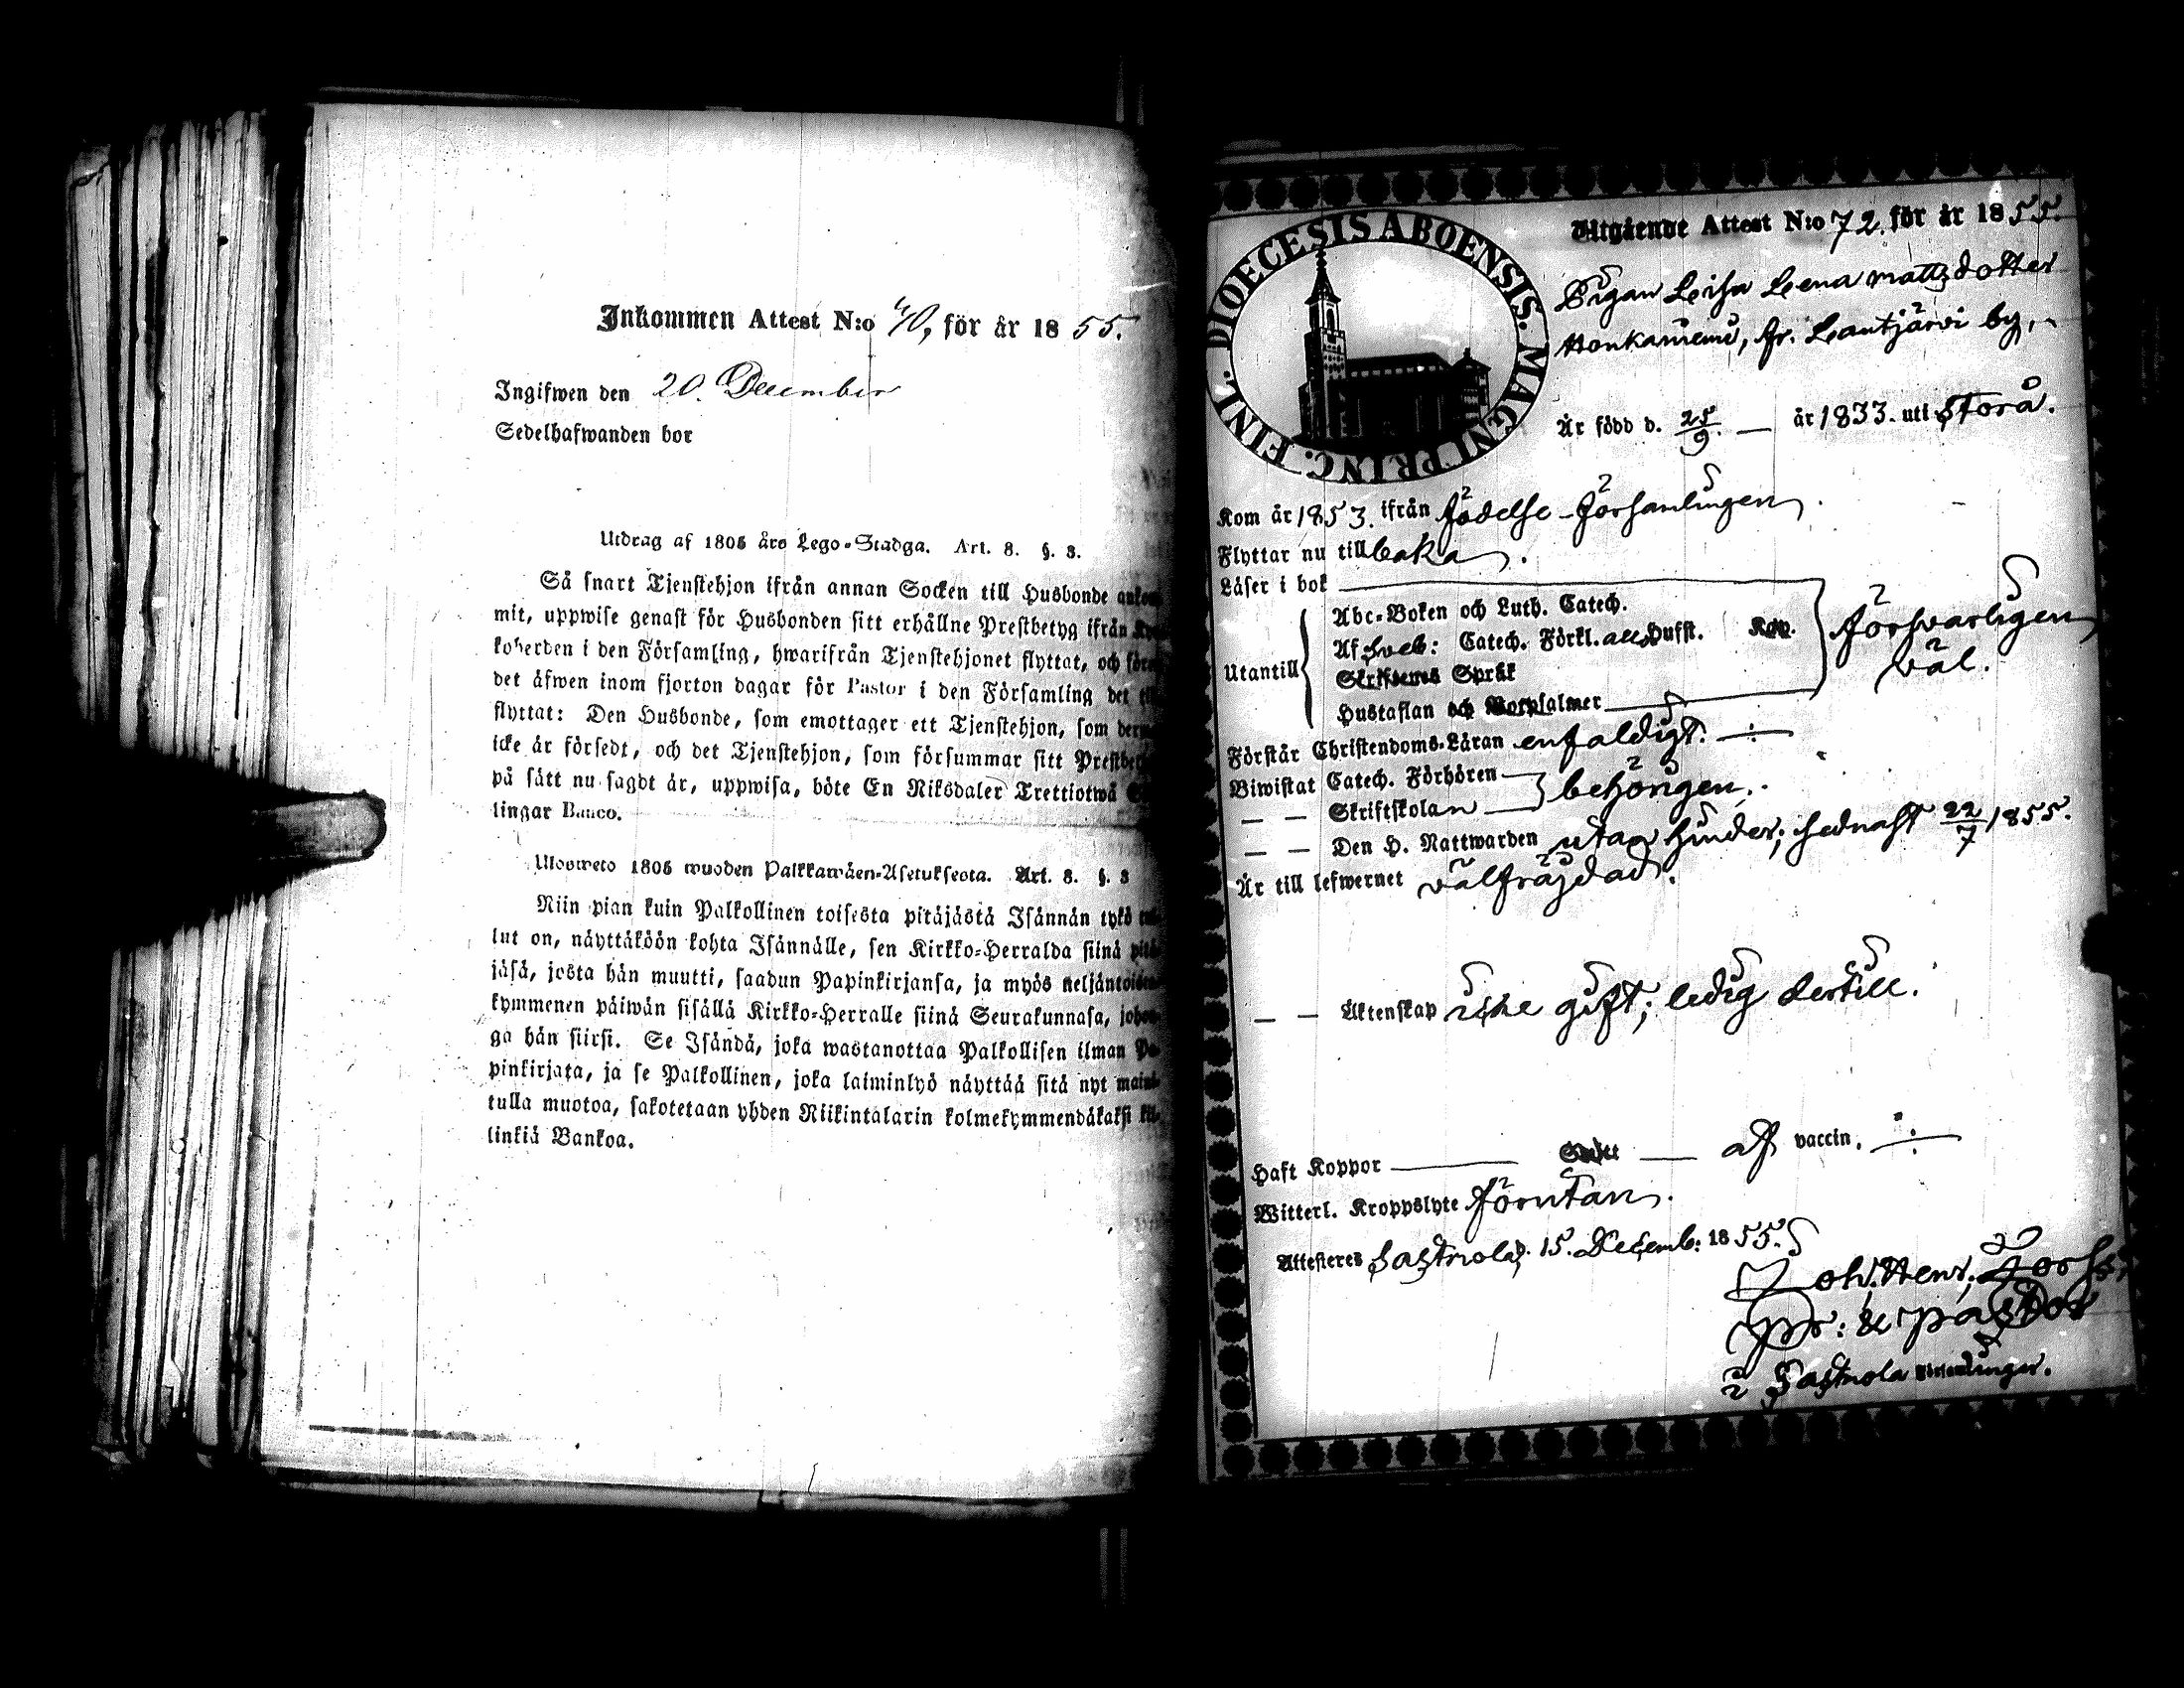 Inkommen Attest N:o 40, för år 1855.
Ingifwen den 20. December
Sedelhafwanden bor
Utdrag af 1805 års Lego-Stadga. Art. 8. §. 3.
Så snart Tjenstehjon ifrån annan Socken till Husbonde
mit, uppwise genast för Husbonden sitt erhållne Prestbetyg ifrån
koherden i den Församling, hwarifrån Tjenstehjonet flyttat, och
det äfwen inom fjorton dagar för Pastor i den Församling det
flyttat: Den Husbonde, som emottager ett Tjenstehjon, som
icke är försedt, och det Tjenstehjon, som försummar sitt
på sätt nu sagdt är, uppwisa, böte En Riksdaler Trettiotwå
lingar Banco.
Ulosweto 1805 wuoden Palkkawäen-Asetuksesta. Art. 8. §. 3
Niin pian kuin Palkollinen toisesta pitäjästä Isännän tykö
lut on, näyttäköön kohta Isännälle, sen Kirkko-Herralda siinä
jäsä, josta hän muutti, saadun Papinkirjansa, ja myös
kymmenen päiwän sisällä Kirkko-Herralle siinä Seurakunnasa,
ga hän siirsi. Se Isändä, joka wastanottaa Palkollisen ilman
pinkirjata, ja se Palkollinen, joka laiminlyö näyttää sitä nyt
tulla muotoa, sakotetaan yhden Riikintalarin kolmekymmendäkaksi
linkiä Bankoa.
FINL. DIOECESIS ABOENSIS. MAGNI PRINC.
Utgående Attest N:o 72. för år 1855.
Pigan Leisa Leena Mattsdotter
Honkaniemi, fr. Lautjärvi by,
Är född d. 25/9. — år 1833. uti Storå.
Kom år 1853. ifrån födelse-församlingen.
Flyttar nu tillbaka.
Läser i bok
Utantill
Abc-Boken och Luth. Catech.
Af Sveb: Catech. Förkl. all Hufst.
Skriftenes Språk
Hustaflan och Botpsalmer
försvarligen
väl.
Förstår Christendoms-Läran enfaldigt.
Biwistat Catech. Förhören
— — Skriftskolan
behörigen.
— — Den H. Nattwarden utan hinder; sednast 22/7 1855.
Är till lefwernet välfräjdad.
— — Äktenskap icke gift; ledig dertill.
Haft Koppor — — af vaccin.
Witterl. Kroppslyte förutan.
Attesteres Sastmola, d. 15. Decemb: 1855.
Joh. Henr.
Pr: & Pastor
i Sastmola Församlingar.